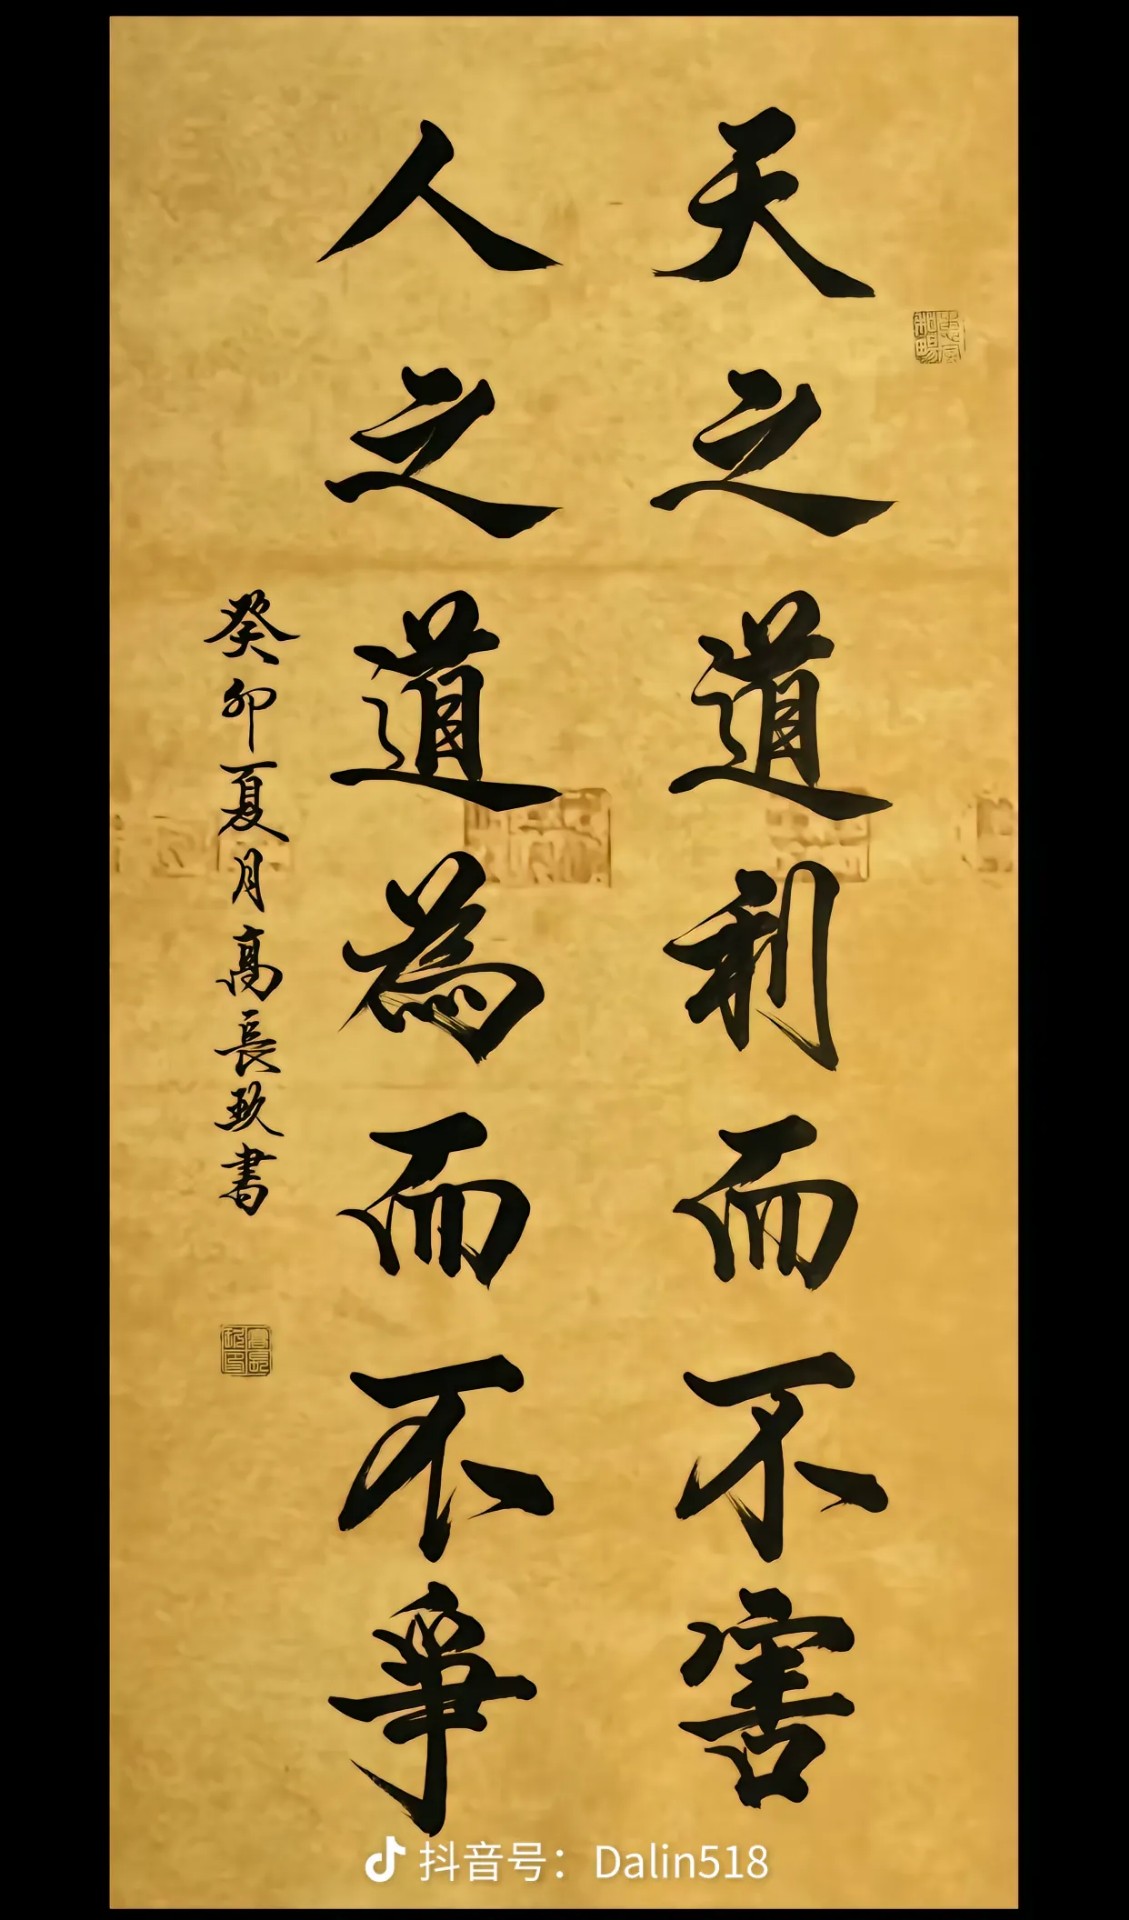 天之道利而不害
人之道為而不爭
癸卯夏月高長玖書
抖音号：Dalin518